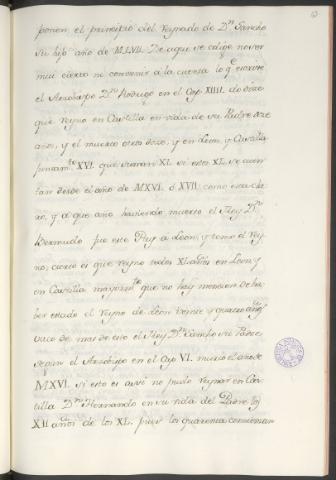 ponen el principio del Reynado de Dⁿ Sancho
su hijo año de MLVII. De aqui se colige no ser
mui cierto ni convenir a la cuenta lo q̃ escrive
el Arzobispo Dⁿ Rodrigo en el Cap. XIIII. do dize
que reyno en Castilla en vida de su Padre doze
años, y el muerto otros doze, y en Leon, y Castilla
juntamᵗᵉ XVI. que serian XL. si estos XL. se cuen
tan desde el año de MXVI. ó XVII. como es cla
ro, y a que año haviendo muerto el Rey Dⁿ
Bermudo fue este Rey a Leon, y tomó el Rey
no, cierto es que reyno todos XL años en Leon, y
en Castilla mayormᵗᵉ que no hay mencion de ha
ber estado el Reyno de Leon veinte y quatro años
vaco: de mas de esto el Rey Dⁿ Sancho su Padre
segun el Arzobispo en el Cap. VI. murió el año de
MXVI. si esto es assi no pudo reynar en Cas
tilla Dⁿ Hernando en vida del Padre los
XII años de los XL. pues los quarenta comienzan